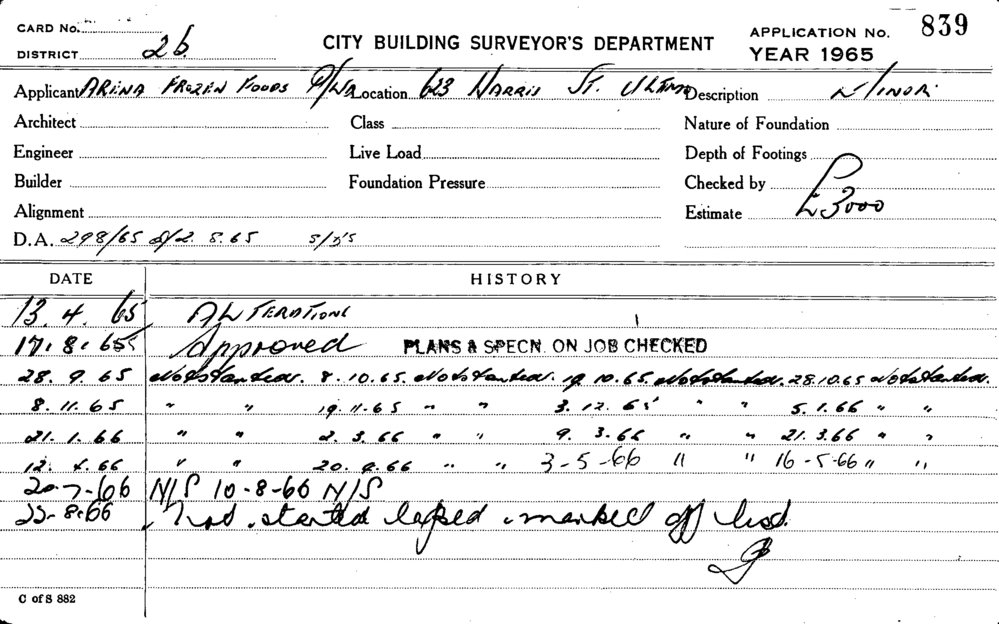 CARD No.
839
DISTRICT 26
CITY BUILDING SURVEYOR'S DEPARTMENT
APPLICATION No.
YEAR 1965
Applicant ARENA FROZEN FOODS P/L Location 623 HARRIS ST. ULTIMO Description MINOR
Architect Class Nature of Foundation
Engineer Live Load Depth of Footings
Builder Foundation Pressure Checked by
Alignment Estimate £3000
D.A. 298/65 2.8.65
DATE HISTORY
13. 4. 65 ALTERATIONS
17. 8. 65 Approved PLANS & SPECN. ON JOB CHECKED
28. 9. 65 Not started. 8.10.65. Not started. 19.10.65. Not started. 28.10.65 Not started.
8. 11. 65 " " 19.11.65 " " 3. 12. 65 " " 5.1.66 " "
21. 1. 66 " " 2. 3. 66 " " 9. 3. 66 " " 21. 3.66 " "
12. 4. 66 " " 20. 4. 66 " " 3-5-66 " " 16-5-66 " "
20-7-66 N/S 10-8-66 N/S
22-8-66 Not started lapsed marked off list.
C of S 882